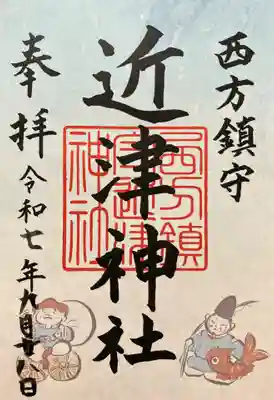 西方鎮守
近津神社
奉拝
令和七年九月廿八日
西方鎮
守近津
神社